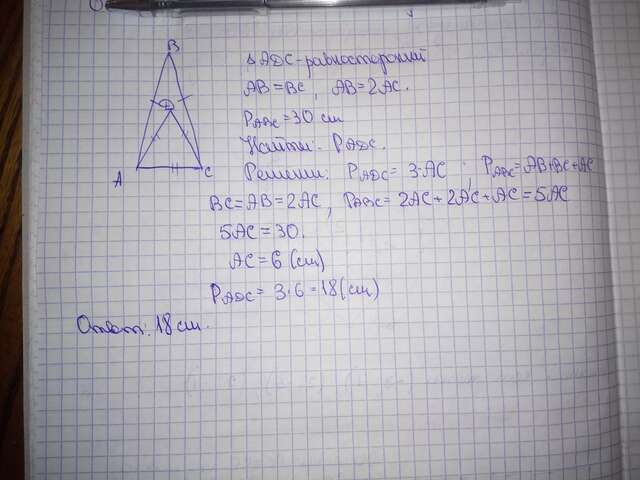 B
D
A
C
△ ADC - равносторонний
AB = BC, AB = 2AC.
P_ABC = 30 см
Найти: P_ADC.
Решение: P_ADC = 3·AC ; P_ABC = AB+BC+AC
BC = AB = 2AC, P_ABC = 2AC + 2AC + AC = 5AC
5AC = 30.
AC = 6 (см)
P_ADC = 3·6 = 18 (см)
Ответ: 18 см.